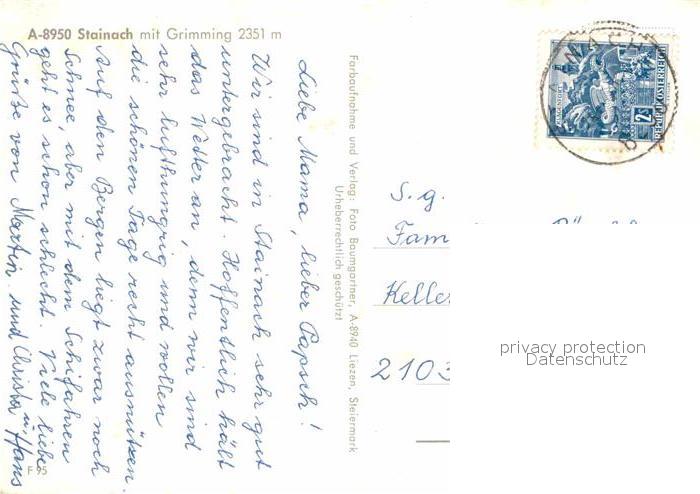 A-8950 Stainach mit Grimming 2351 m
Liebe Mama, lieber Papsch!
Wir sind in Stainach sehr gut
untergebracht. Hoffentlich hält
das Wetter an, denn wir sind
sehr lufthungrig und wollen
die schönen Tage recht ausnützen.
Auf den Bergen liegt zwar noch
Schnee, aber mit dem Schifahren
geht es schon schlecht. Viele liebe
Grüße von Martin und Christa u. Hans
F 95
Farbaufnahme und Verlag: Foto Baumgartner, A-8940 Liezen, Steiermark
Urheberrechtlich geschützt
REPUBLIK ÖSTERREICH
2S
S. g.
Fam
Kelle
2103
privacy protection
Datenschutz